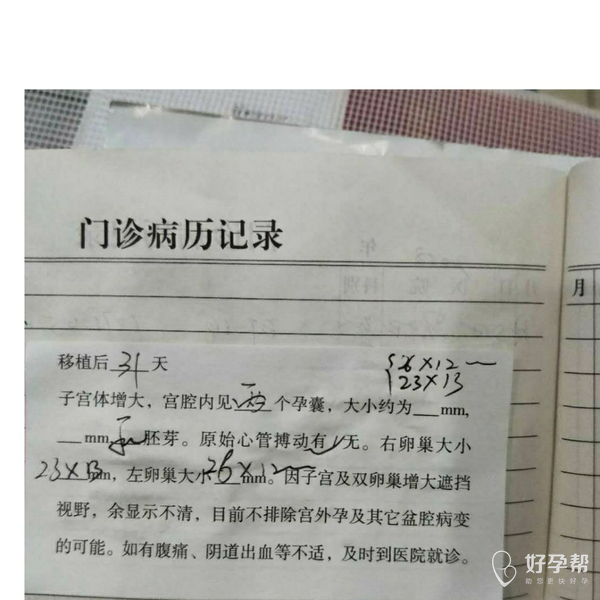 门诊病历记录
月
移植后 31 天
26×12
23×13
子宫体增大，宫腔内见 两 个孕囊，大小约为___mm,
___mm, 胚芽。原始心管搏动有√无。右卵巢大小
23×13mm，左卵巢大小 26×12 mm。因子宫及双卵巢增大遮挡
视野，余显示不清，目前不排除宫外孕及其它盆腔病变
的可能。如有腹痛、阴道出血等不适，及时到医院就诊。
好孕帮
助您更快好孕